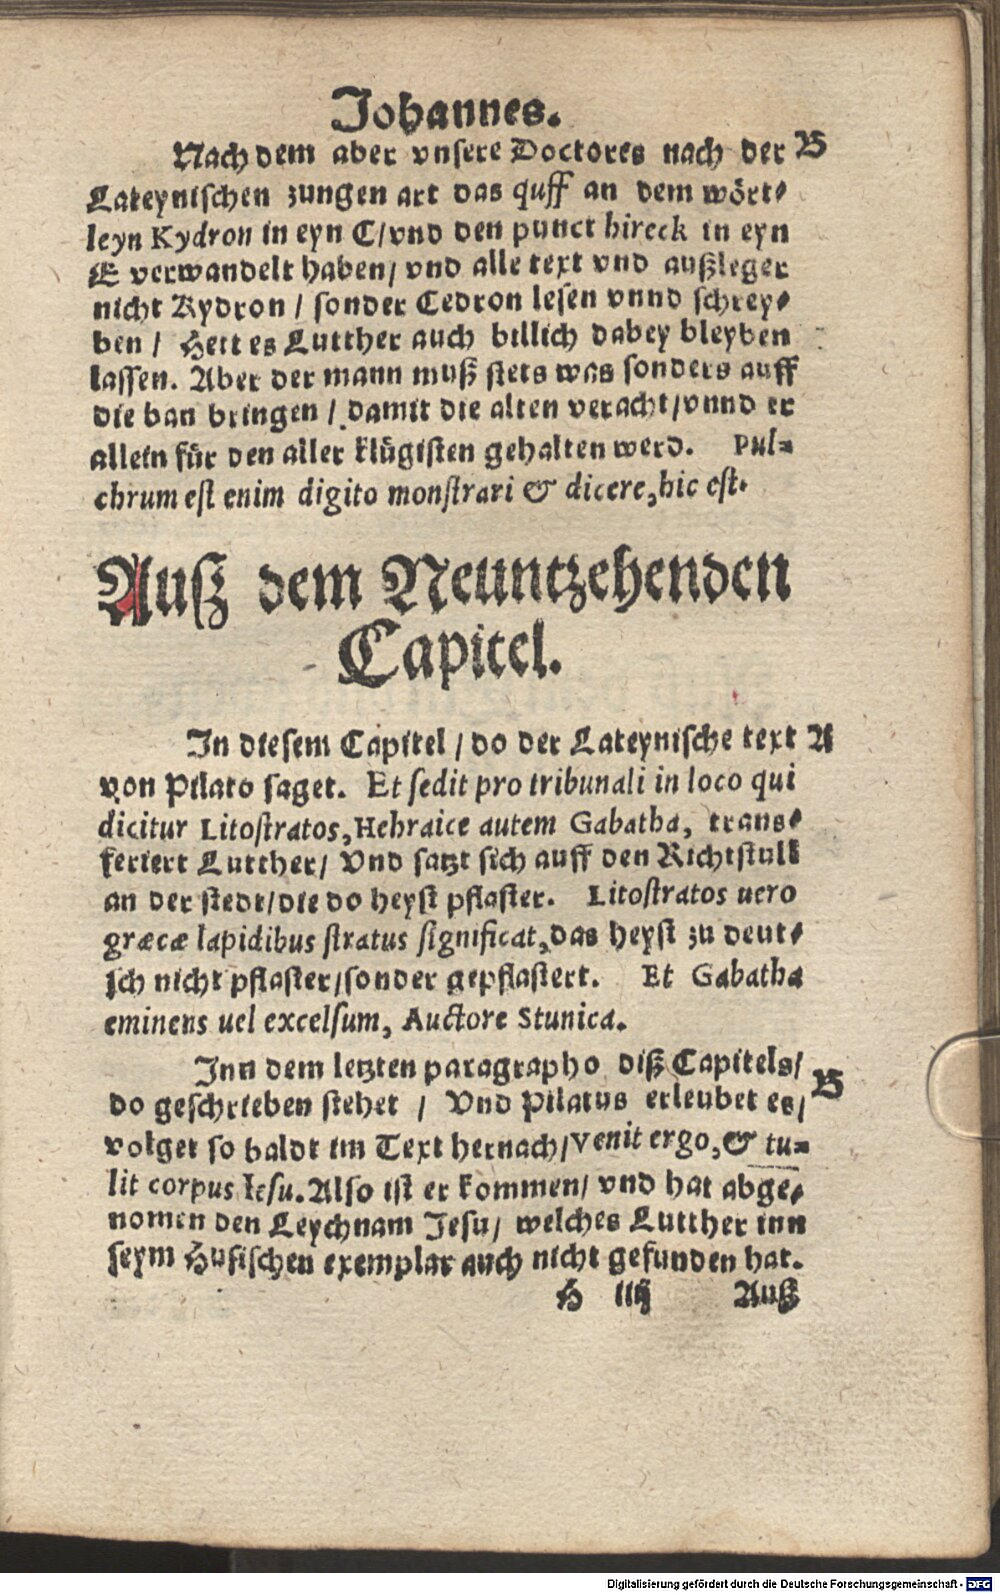 Johannes.
Nach dem aber vnsere Doctores nach der B
Lateynischen zungen art das quff an dem wört⸗
leyn Kydron in eyn C/vnd den punct hireck in eyn
E verwandelt haben/ vnd alle text vnd außleger
nicht Kydron / sonder Cedron lesen vnnd schrey⸗
ben / Hett es Lutther auch billich dabey bleyben
lassen. Aber der mann muß stets was sonders auff
die ban bringen / damit die alten veracht/vnnd er
allein für den aller klügisten gehalten werd. Pul⸗
chrum est enim digito monstrari & dicere, hic est.
Auß dem Neuntzehenden
Capitel.
In diesem Capitel / do der Lateynische text A
von Pilato saget. Et sedit pro tribunali in loco qui
dicitur Litostratos, Hebraice autem Gabatha, trans⸗
feriert Lutther/ Vnd satzt sich auff den Richtstull
an der stedt/die do heyst pflaster. Litostratos uero
græcæ lapidibus stratus significat, das heyst zu deut⸗
sch nicht pflaster/sonder gepflastert. Et Gabatha
eminens uel excelsum, Auctore Stunica.
Inn dem letzten paragrapho diß Capitels/
do geschrieben stehet / Vnd Pilatus erleubet es/ B
volget so baldt im Text hernach/Venit ergo, & tu⸗
lit corpus Iesu. Also ist er kommen/ vnd hat abge⸗
nomen den Leychnam Jesu/ welches Lutther inn
seym Husischen exemplar auch nicht gefunden hat.
H iiij Auß
Digitalisierung gefördert durch die Deutsche Forschungsgemeinschaft - DFG